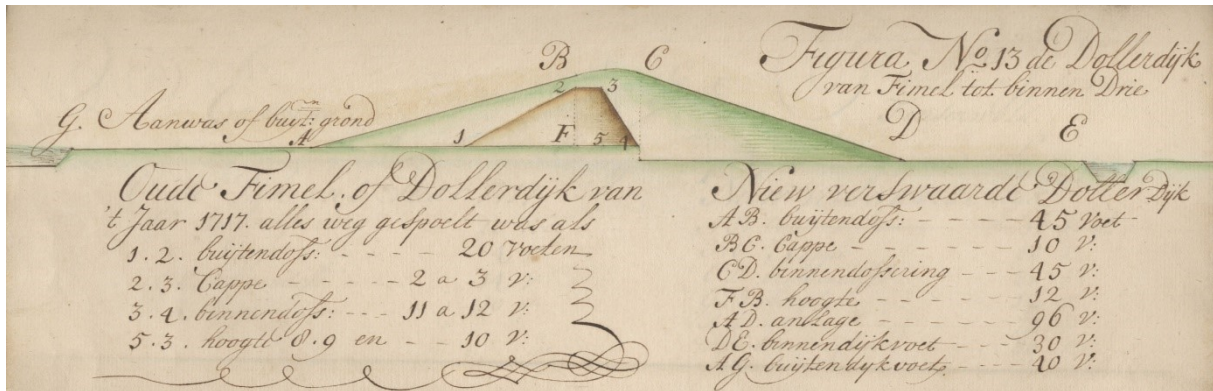 B C
Figura No 13 de Dollerdijk
van Fimel tot binnen Drie
2 3
G. Aanwas of buyt:en grond
A 1 F 5 4 D E
Oude Fimel of Dollerdijk van
't Jaar 1717. alles weg gespoelt was als
1. 2. buijtendoss: - - - - 20 voeten
2. 3. Cappe - - - - 2 a 3 v:
3. 4. binnendoss: - - - 11 a 12 v:
5. 3. hoogte 8. 9 en - - 10 v:
Niew verswaarde Doller Dijk
AB. buijtendoss: - - - - - 45 voet
BC. Cappe - - - - - - 10 v:
CD. binnendossering - - - 45 v:
FB. hoogte - - - - - - 12 v:
AD. anlage - - - - - 96 v:
DE. binnendijkvoet - - - 30 v:
AG. buijtendykvoet. - - - 40 v: